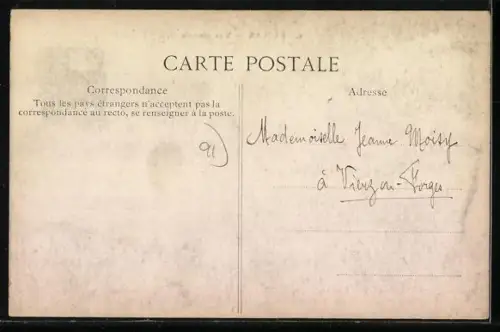 CARTE POSTALE
Correspondance
Tous les pays étrangers n'acceptent pas la
correspondance au recto, se renseigner à la poste.
91
Adresse
Mademoiselle Jeanne Moisy
à Vierzon-Forges